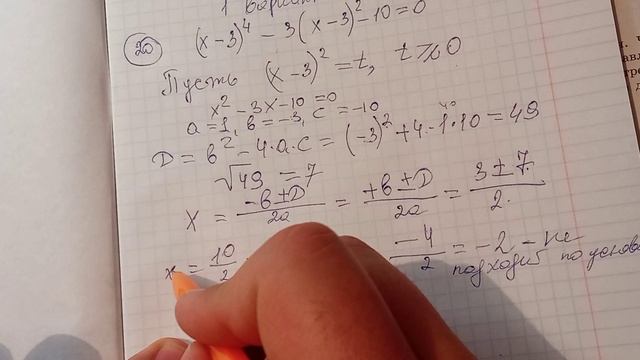 1 Вариант
20 (x-3)⁴ - 3(x-3)² - 10 = 0
Пусть (x-3)² = t, t ≥ 0
x² - 3x - 10 = 0
a = 1, b = -3, c = -10
D = b² - 4·a·c = (-3)² + 4·1·10 = 49
√49 = 7
x = -b ± D / 2a = +b ± D / 2a = 3 ± 7 / 2.
x = 10 / 2 -4 / 2 = -2 - не
подходит по услов